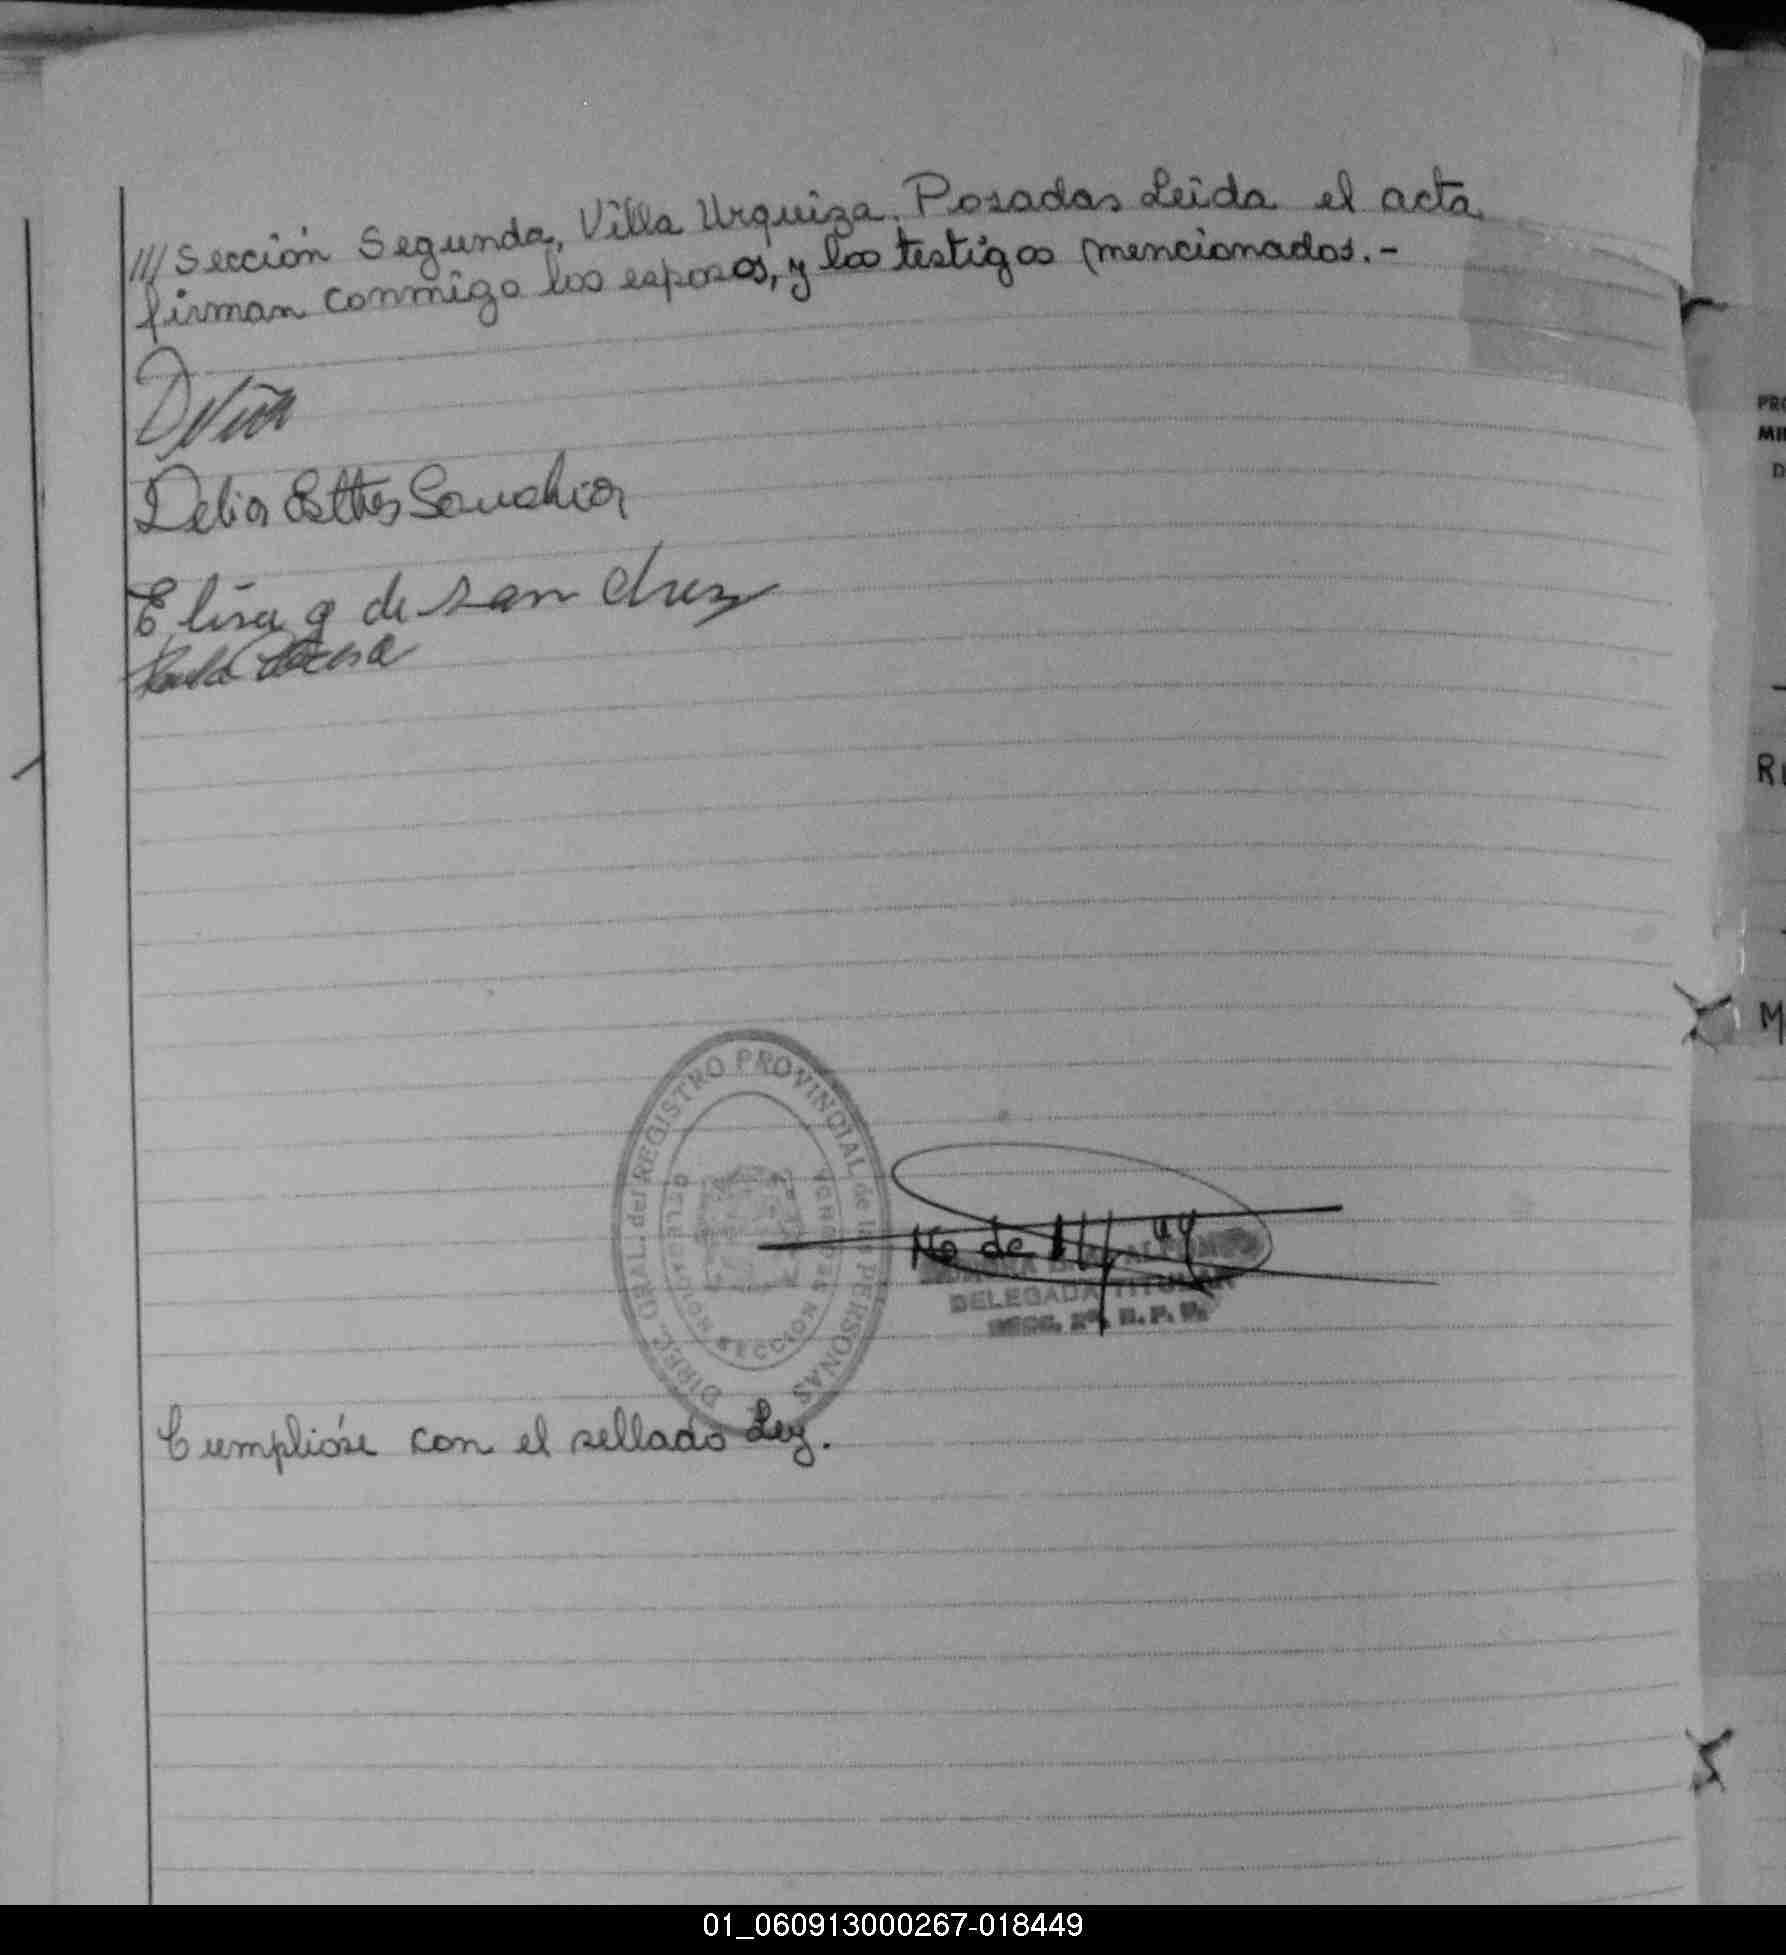 /// Sección Segunda, Villa Urquiza. Posadas Leida el acta
firman conmigo los esposos, y los testigos mencionados.-
Delia Esther
Elisa g de sanchez
DIREC. GRAL. del REGISTRO PROVINCIAL de las PERSONAS
DELEGACION SECCION 2ª
DELEGADA TITULAR
SECC. 2ª. R. P. P.
Cumplióse con el sellado Ley.
PRO
MI
D
R
M
01_060913000267-018449